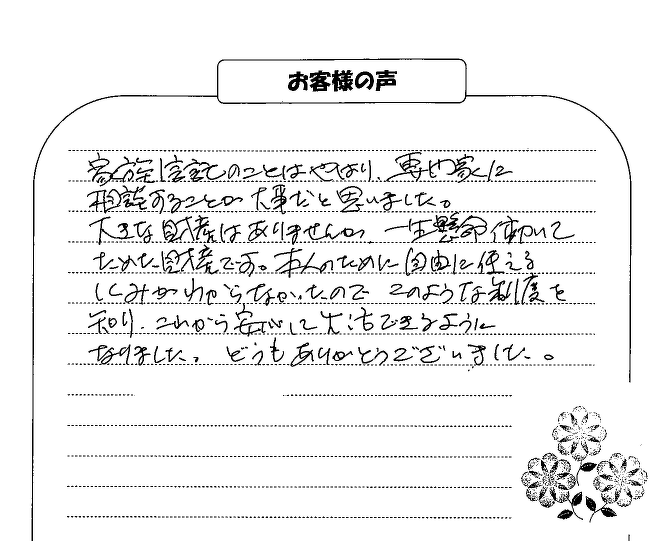 お客様の声
家族信託のことはやはり、専門家に
相談することが大事だと思いました。
大きな財産はありませんが、一生懸命働いて
ためた財産です。本人のために自由に使える
しくみがわからなかったので このような制度を
知り、これから安心して生活できるように
なりました。どうもありがとうございました。